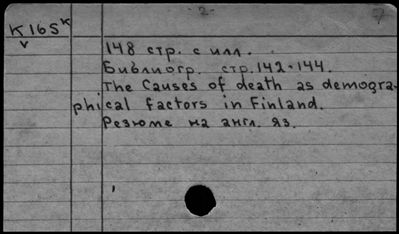 -2-
7
K165K
v
148 стр. с илл.
Библиогр. стр.142-144.
The Causes of death as demogra-
phical factors in Finland.
Резюме на англ. яз.